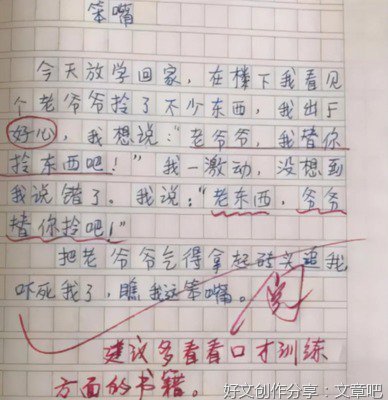 笨嘴
今天放学回家，在楼下我看见
个老爷爷拎了不少东西，我出于
好心，我想说："老爷爷，我替你
拎东西吧！"我一激动，没想到
我说错了。我说："老东西，爷爷
替你拎吧！"
把老爷爷气得拿起砖头追我
吓死我了，瞧我这笨嘴。
阅
建议多看看口才训练
方面的书籍。
好文创作分享：文章吧